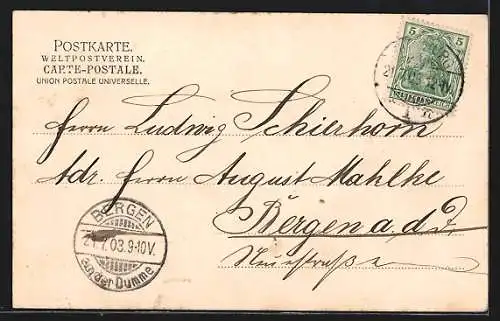 POSTKARTE.
WELTPOSTVEREIN.
CARTE-POSTALE.
UNION POSTALE UNIVERSELLE.
5 5
Herrn Ludwig Schierhorn
Adr. Herrn August Mahlke
Bergen a. d. D.
Neuestraße
BERGEN
03.9-10V.
an der Dumme